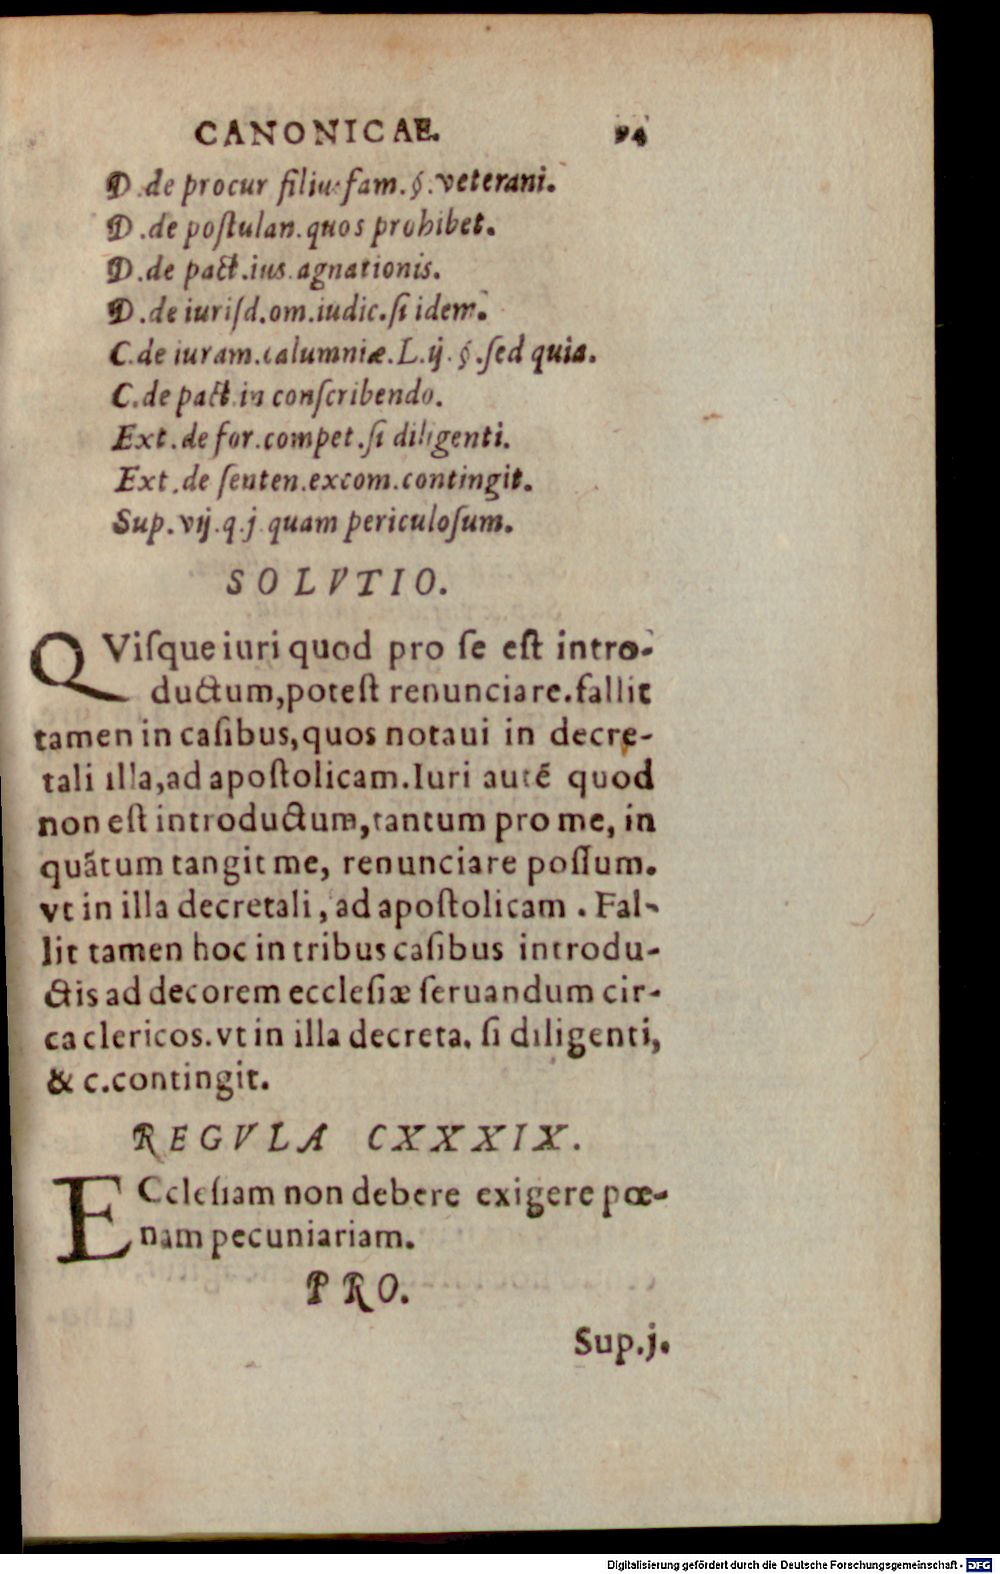 CANONICAE. 94
D.de procur filiusfam.§.veterani.
D.de poſtulan.quos prohibet.
D.de pact.ius.agnationis.
D.de iuriſd.om.iudic.ſi idem.
C.de iuram.calumniæ.L.ij.§.ſed quia.
C.de pact.in conſcribendo.
Ext.de for.compet.ſi diligenti.
Ext.de ſenten.excom.contingit.
Sup.vij.q.j.quam periculoſum.
SOLVTIO.
QViſque iuri quod pro ſe eſt intro-
ductum,poteſt renunciare.fallit
tamen in caſibus,quos notaui in decre-
tali illa,ad apoſtolicam.Iuri autẽ quod
non eſt introductum,tantum pro me, in
quãtum tangit me, renunciare poſſum.
vt in illa decretali, ad apoſtolicam . Fal-
lit tamen hoc in tribus caſibus introdu-
ctis ad decorem eccleſiæ ſeruandum cir-
ca clericos.vt in illa decreta. ſi diligenti,
& c.contingit.
REGVLA CXXXIX.
ECcleſiam non debere exigere pœ-
nam pecuniariam.
PRO.
Sup.j.
Digitalisierung gefördert durch die Deutsche Forschungsgemeinschaft - DFG